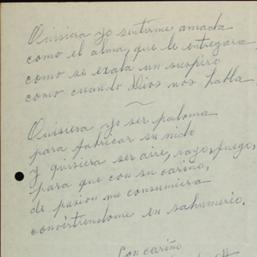 Quisiera yo sentirme amada
como el alma que te entregara
como si exala un suspiro
como cuando Dios nos habla
Quisiera yo ser paloma
para fabricar su nido
y quisiera ser aire, rayo, fuego,
para que con su cariño,
de pasion me consumiera
convirtiendome en sahumerio.
Con cariño